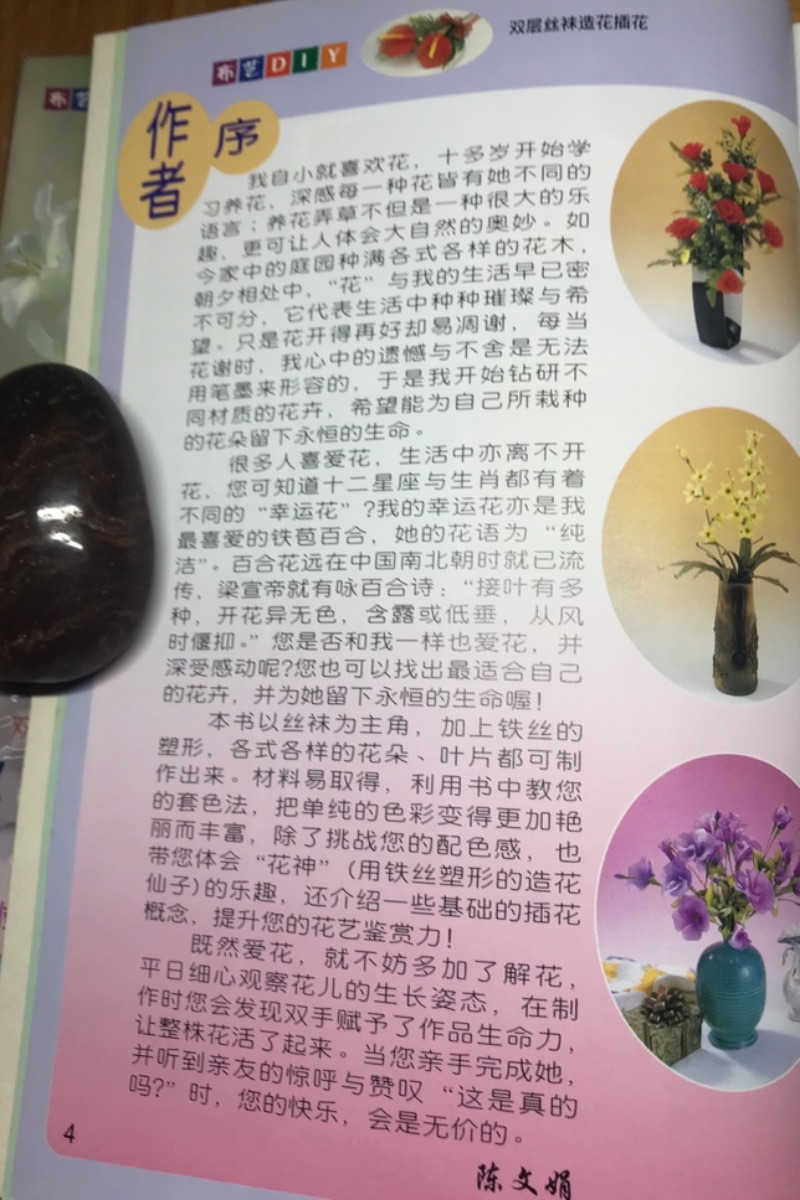 双层丝袜造花插花
布艺DIY
布艺
作者
序
我自小就喜欢花，十多岁开始学
习养花，深感每一种花皆有她不同的
语言；养花弄草不但是一种很大的乐
趣，更可让人体会大自然的奥妙。如
今家中的庭园种满各式各样的花木，
朝夕相处中，“花”与我的生活早已密
不可分，它代表生活中种种璀璨与希
望。只是花开得再好却易凋谢，每当
花谢时，我心中的遗憾与不舍是无法
用笔墨来形容的，于是我开始钻研不
同材质的花卉，希望能为自己所栽种
的花朵留下永恒的生命。
很多人喜爱花，生活中亦离不开
花，您可知道十二星座与生肖都有着
不同的“幸运花”?我的幸运花亦是我
最喜爱的铁苞百合，她的花语为“纯
洁”。百合花远在中国南北朝时就已流
传，梁宣帝就有咏百合诗：“接叶有多
种，开花异无色，含露或低垂，从风
时偃抑。”您是否和我一样也爱花，并
深受感动呢?您也可以找出最适合自己
的花卉，并为她留下永恒的生命喔！
本书以丝袜为主角，加上铁丝的
塑形，各式各样的花朵、叶片都可制
作出来。材料易取得，利用书中教您
的套色法，把单纯的色彩变得更加艳
丽而丰富，除了挑战您的配色感，也
带您体会“花神”(用铁丝塑形的造花
仙子)的乐趣，还介绍一些基础的插花
概念，提升您的花艺鉴赏力！
既然爱花，就不妨多加了解花，
平日细心观察花儿的生长姿态，在制
作时您会发现双手赋予了作品生命力，
让整株花活了起来。当您亲手完成她，
并听到亲友的惊呼与赞叹“这是真的
吗?”时，您的快乐，会是无价的。
陈文娟
4